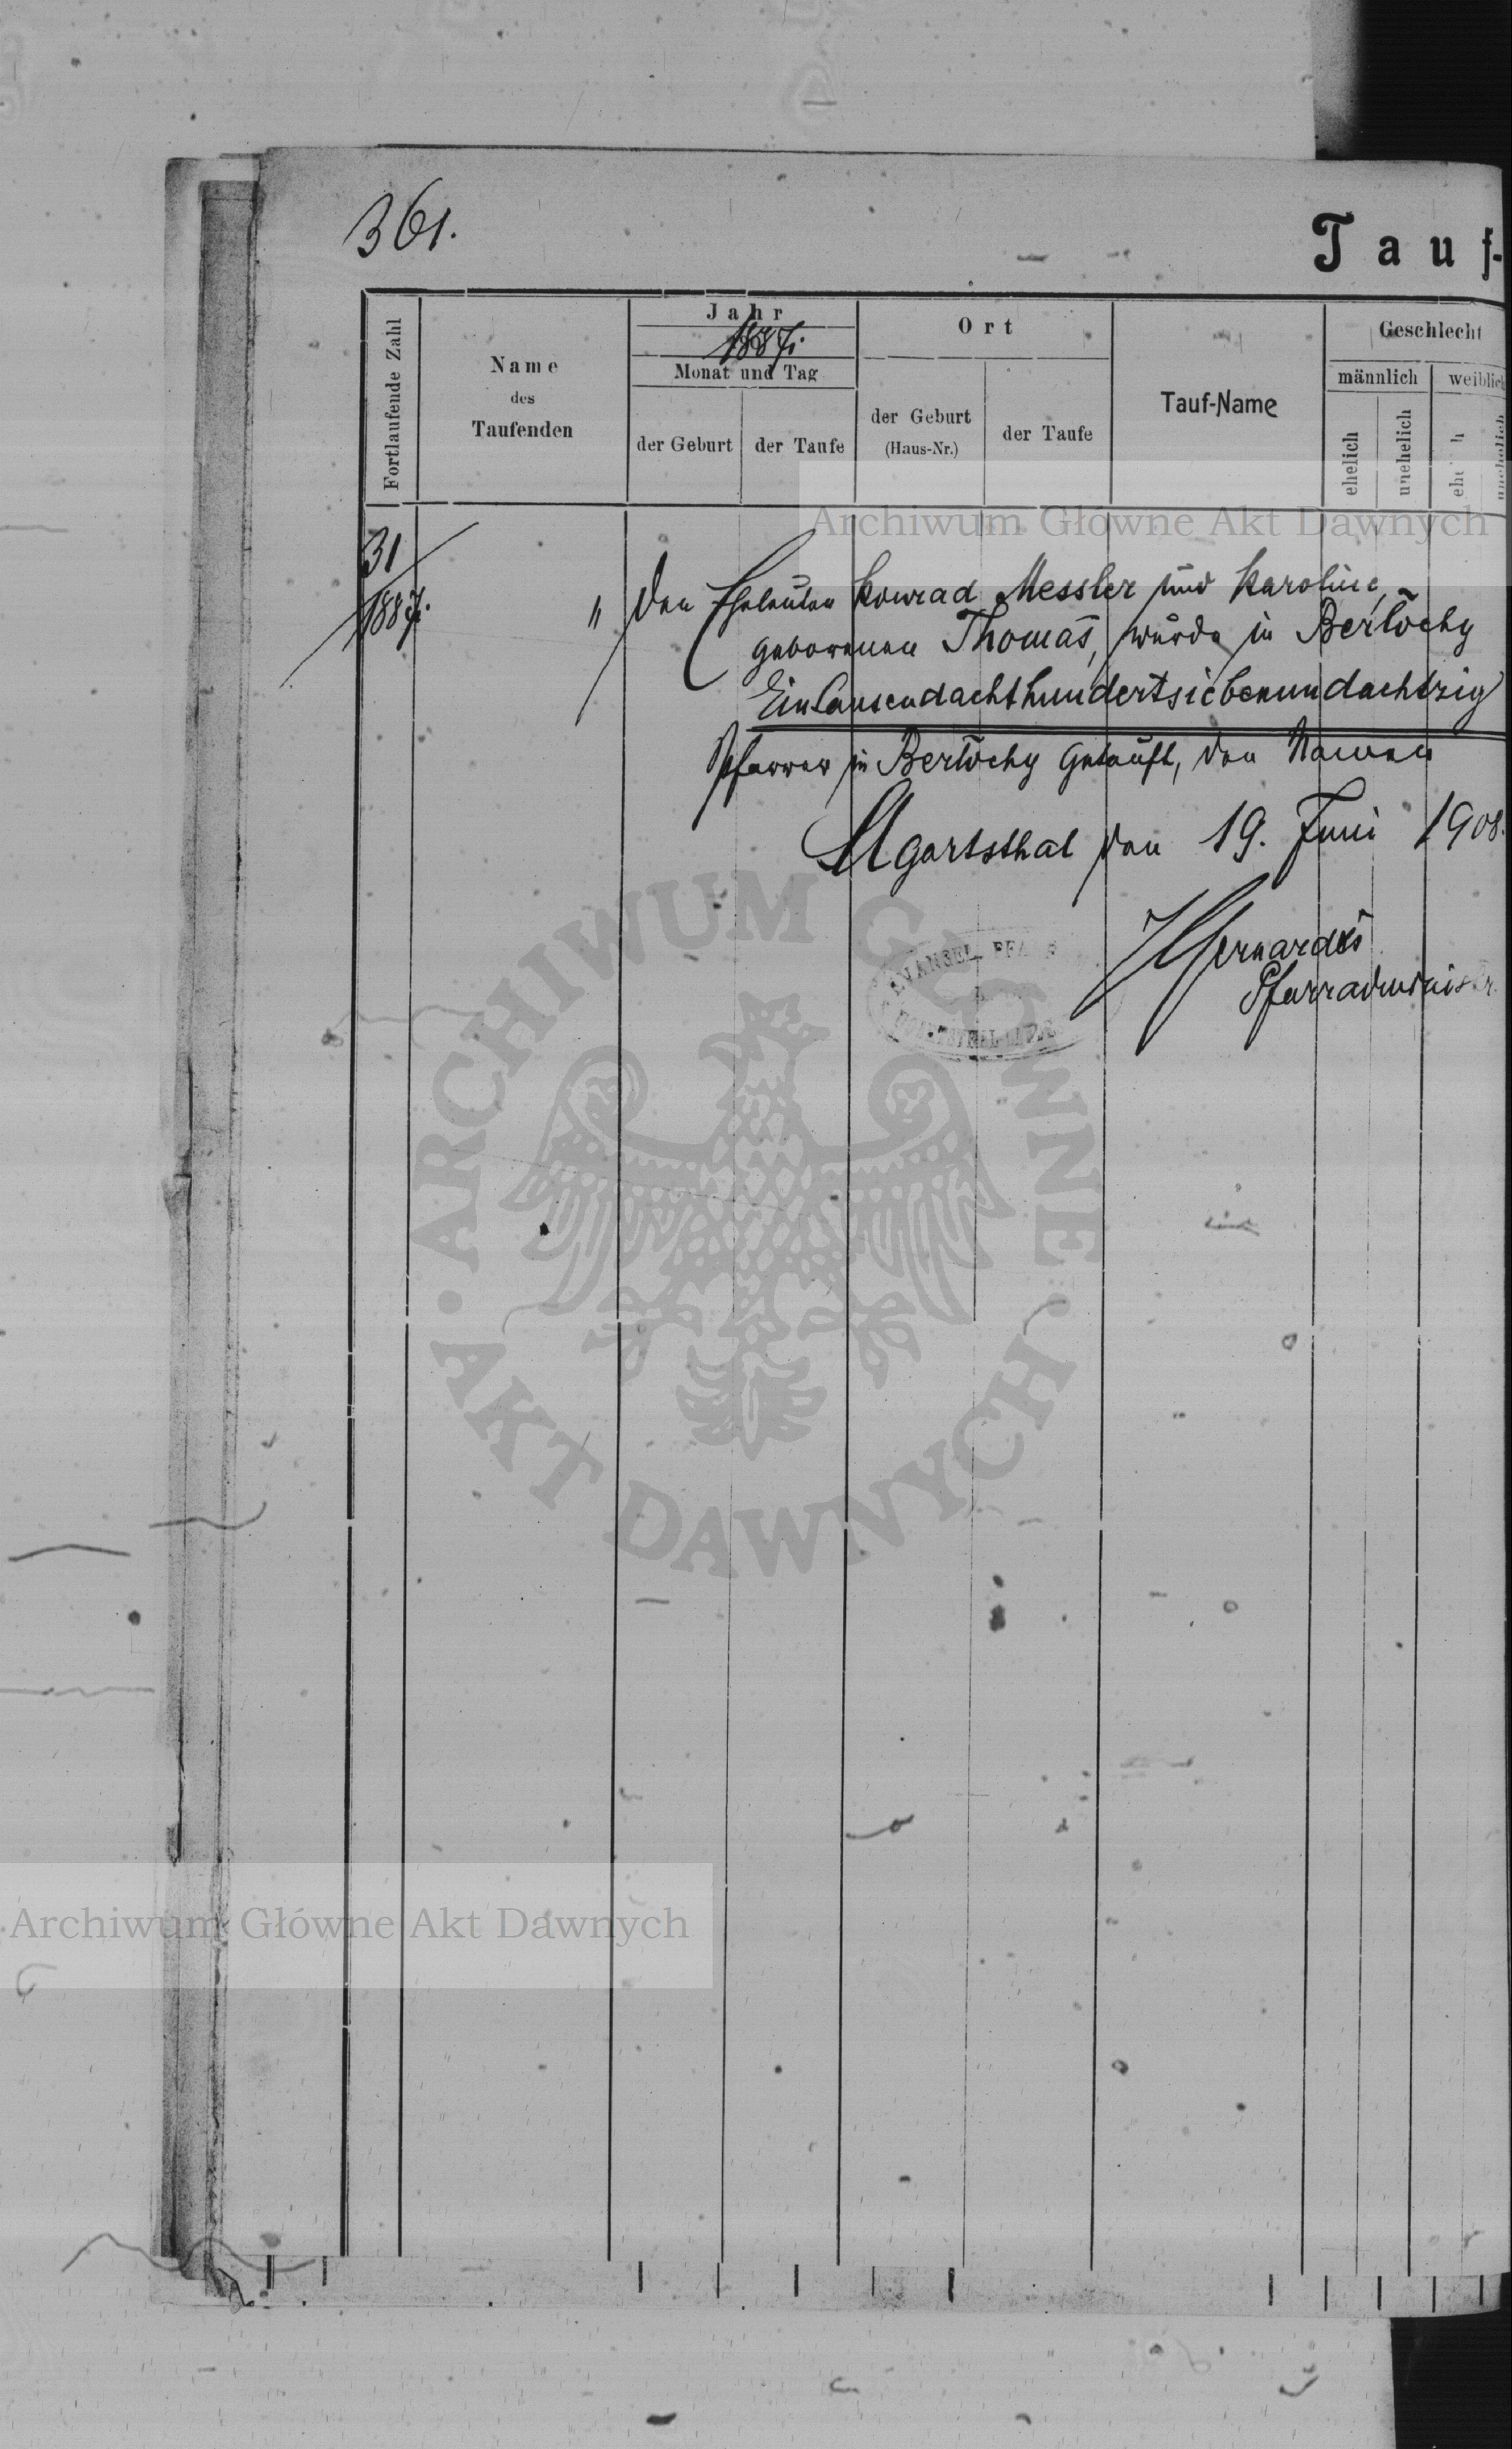 361.
Tauf-
Fortlaufende Zahl
Name
des
Taufenden
Jahr
1887
Monat und Tag
der Geburt
der Taufe
Ort
der Geburt
(Haus-Nr.)
der Taufe
Tauf-Name
Geschlecht
männlich
weiblich
ehelich
unehelich
Archiwum Główne Akt Dawnych
31
1887.
" Den Eheleuten Konrad Messler und Karoline,
geborenen Thomas, wurde in Bertochy
Eintausendachthundertsiebenundachtzig
Pfarrer in Bertochy getauft, den Namen
Ugartsthal den 19. Juni 1908.
EVANGEL. PFA
Pfarradminist
ARCHIWUM GŁÓWNE
AKT DAWNYCH
Archiwum Główne Akt Dawnych